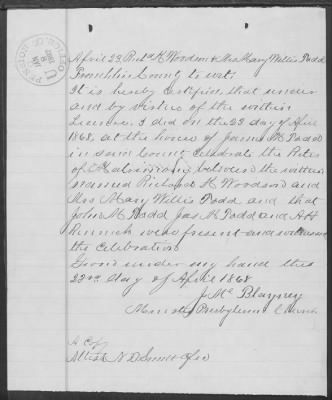 April 23 Richd K Woodson & Mrs Mary Willis Todd
Franklin County to wit:
It is hereby Certified, that under
and by virtue of the within
License, I did on the 23 day of April
1868, at the house of James M Todd
in said County celebrate the Rites
of Matrimony between the within
named Richard K Woodson and
Mrs Mary Willis Todd and that
John M Todd Jas M Todd and
were present and witnessed
the Celebration
Given under my hand this
23rd day of April 1868
J Mc Blayney
Minister Presbyterian Church
A Copy
Attest N. D.
PENSION OFFICE